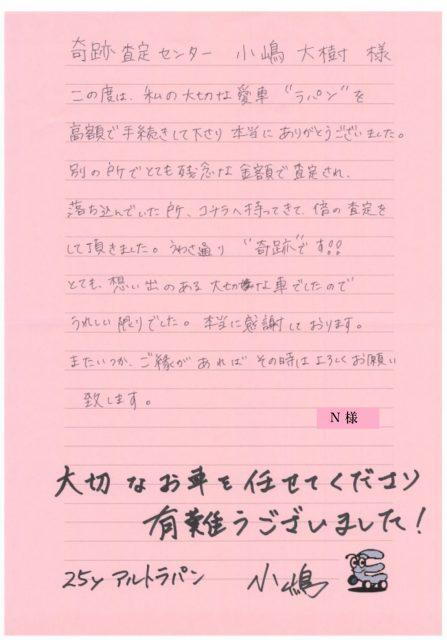 奇跡査定センター 小嶋 大樹 様
この度は、私の大切な愛車 "ラパン" を
高額で手続きして下さり 本当に ありがとうございました。
別の所でとても残念な金額で査定され、
落ち込んでいた所、コチラへ持ってきて、倍の査定を
して頂きました。うわさ通り "奇跡"です!!
とても、想い出のある 大切な車でしたので
うれしい限りでした。本当に感謝しております。
またいつか、ご縁があれば その時は よろしくお願い
致します。
N 様
大切なお車を任せてくださり
有難うございました!
25y アルトラパン 小嶋